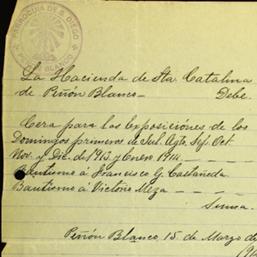 PARROQUIA DE S. DIEGO
La Hacienda de Sta. Catalina
de Peñón Blanco Debe.
Cera para las Exposiciónes de los
Domingos primeros de Jul. Agto. Sep. Oct
Nov. y Dic. de 1913. y Enero 1914.
Bautismo á Francisco G. Castañeda
Bautismo á Victoria Meza
Suma.
Peñón Blanco, 15 de Marzo de